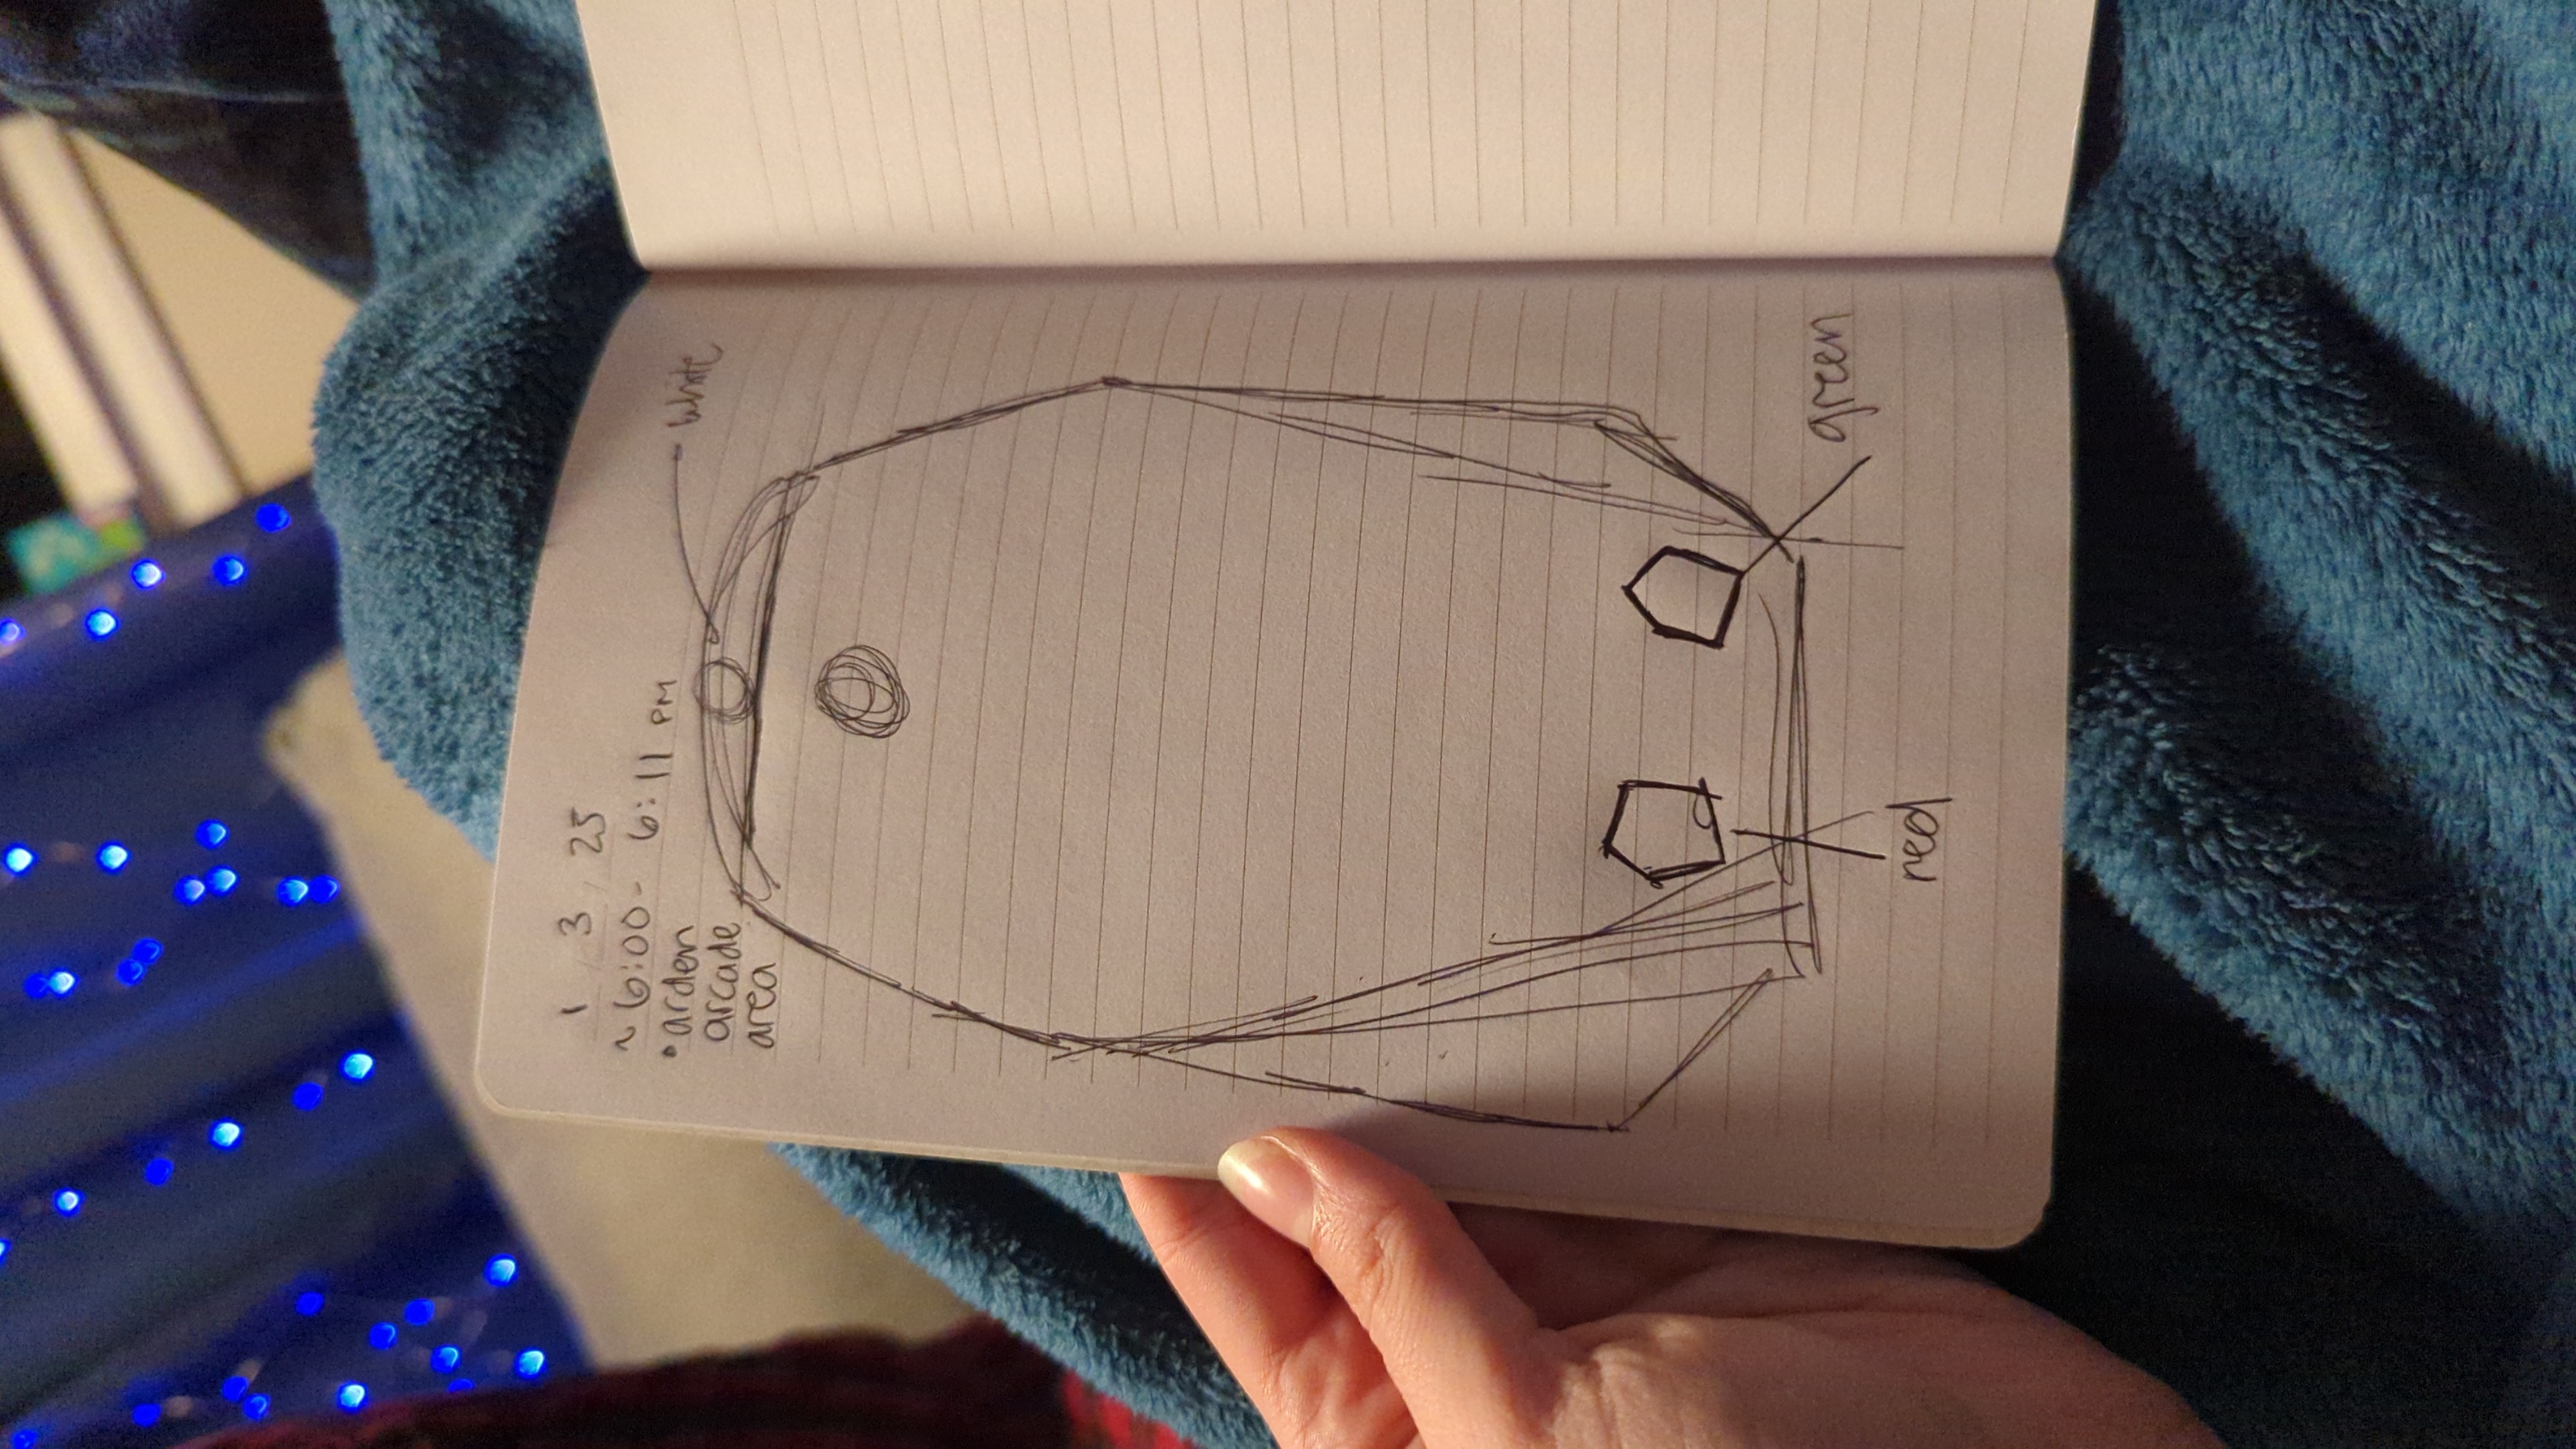 1 3 25
~6:00- 6:11 PM
• arden
arcade
area
White
green
red